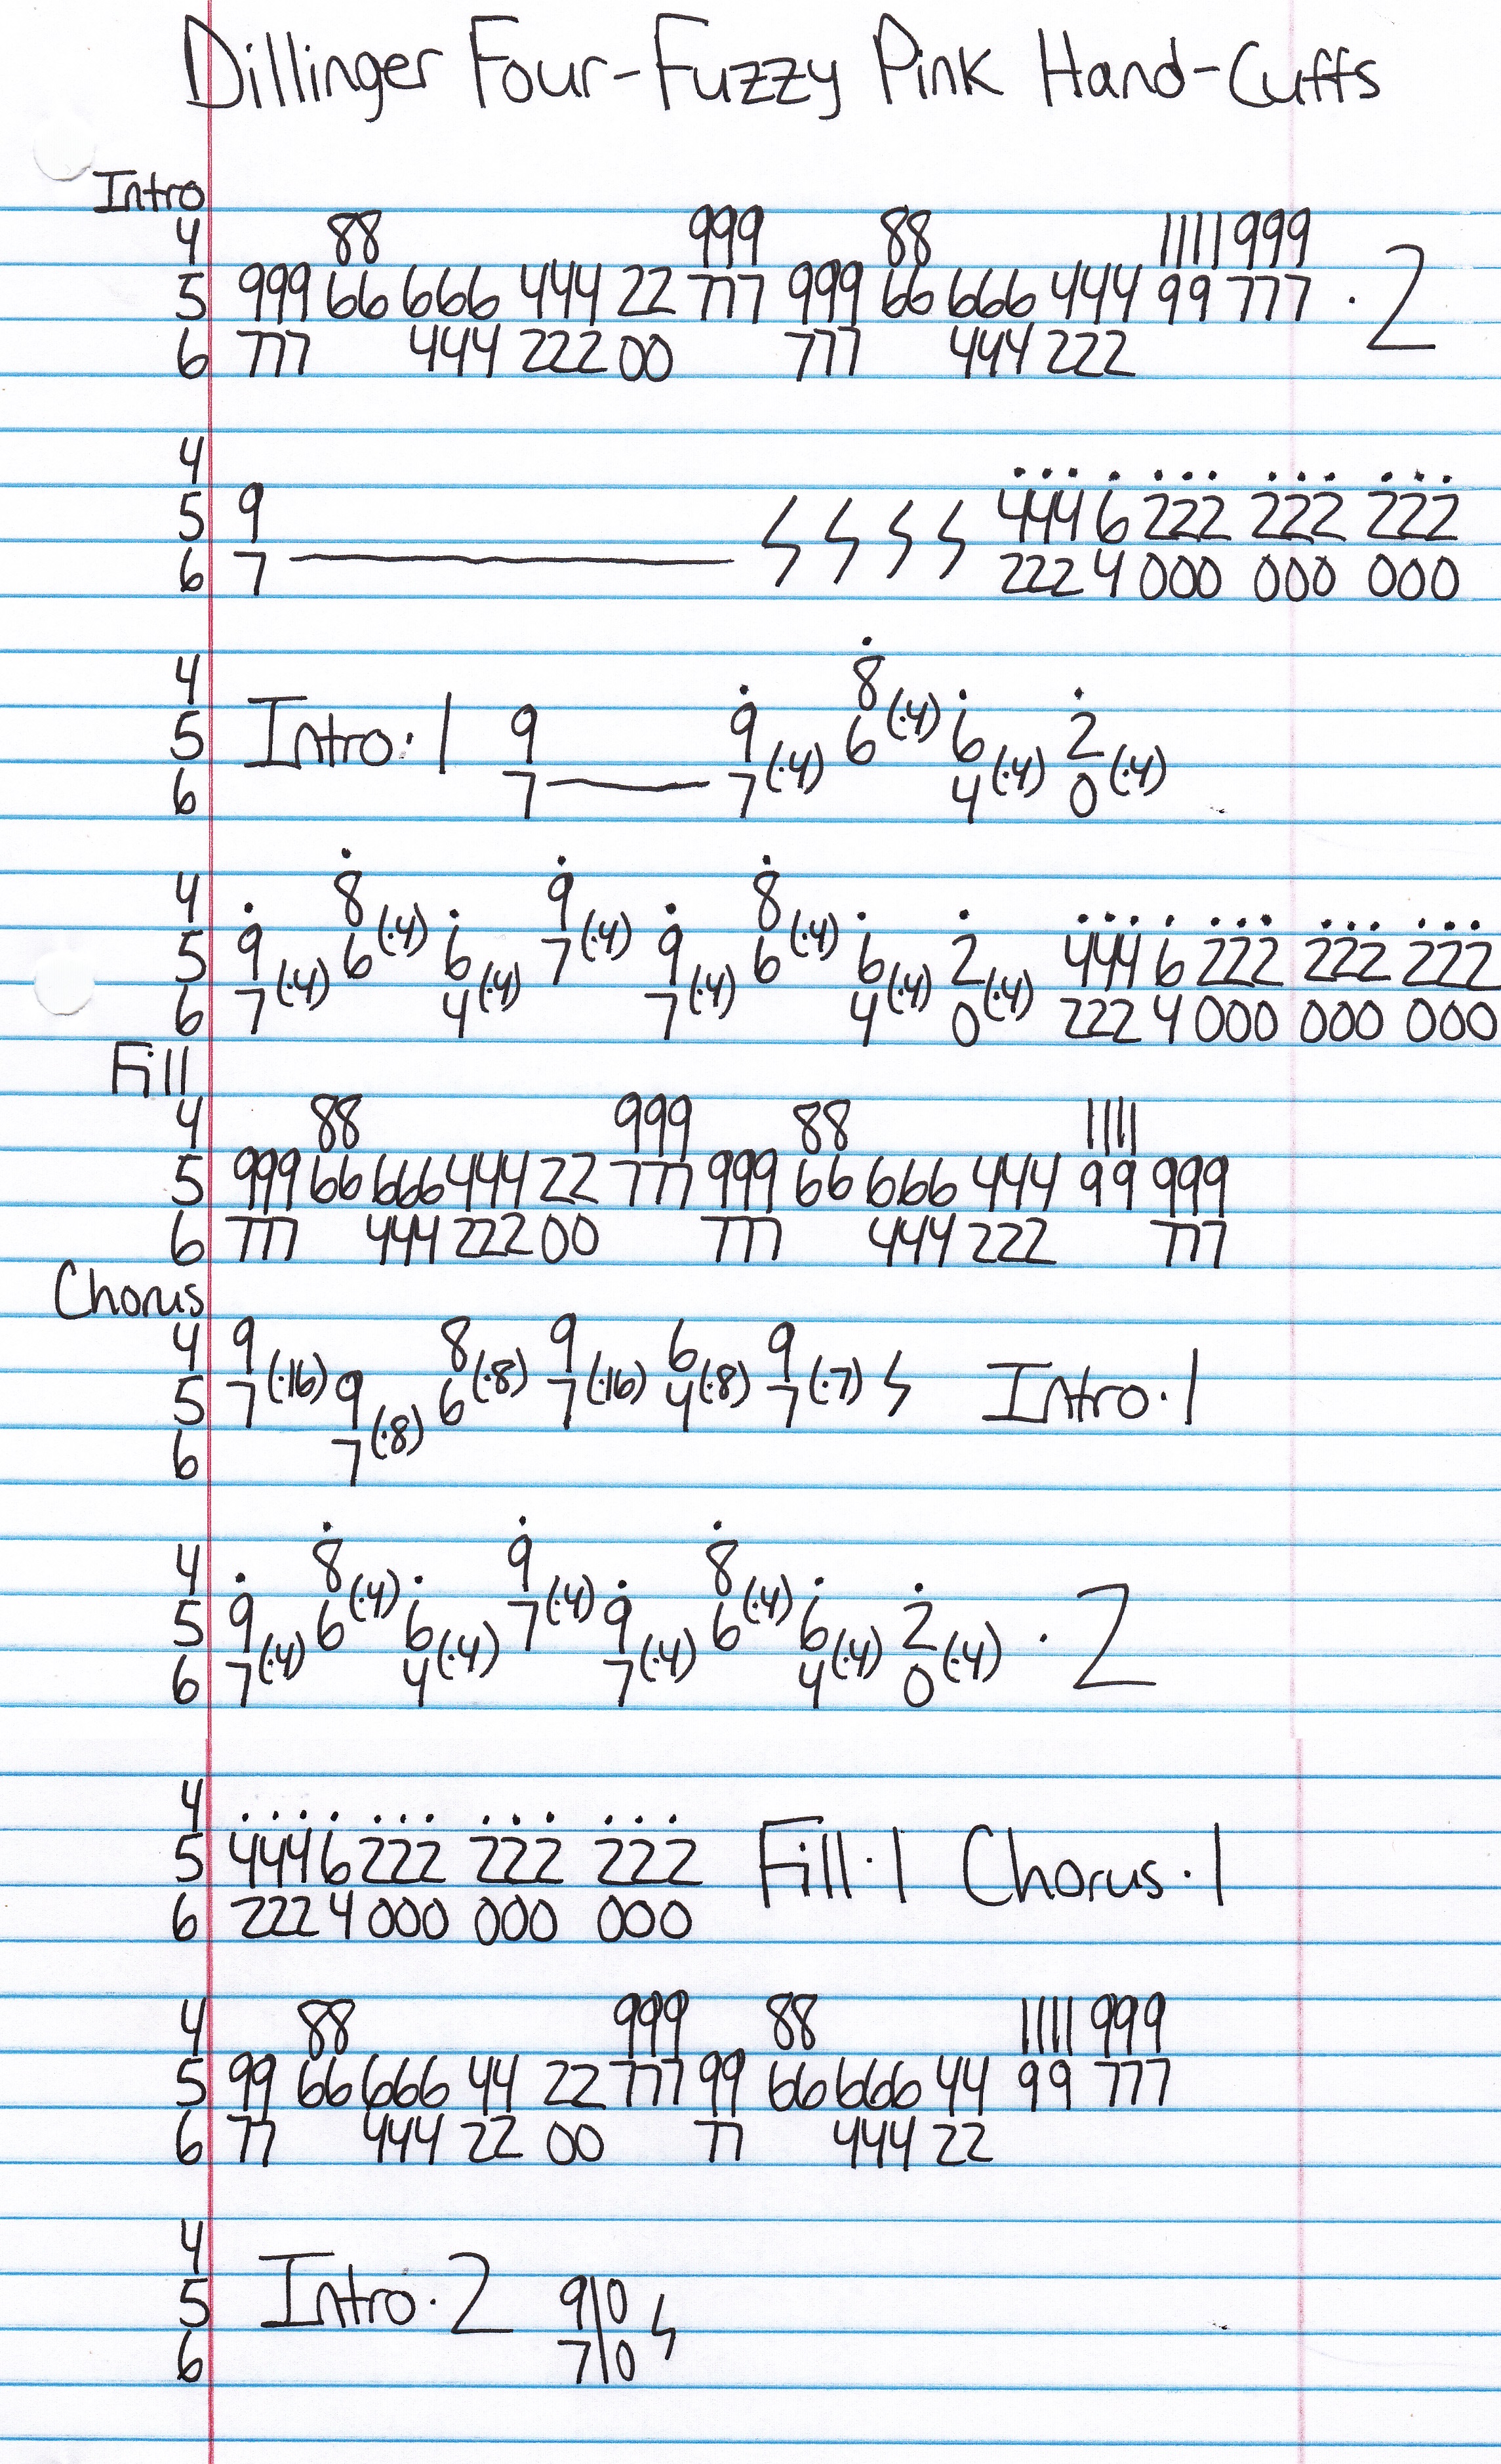 Dillinger Four-Fuzzy Pink Hand-Cuffs
Intro
4 88 999 88 1111 999
5 999 66 666 444 22 777 999 66 666 444 99 777 · 2
6 777 444 222 00 777 444 222
4
5 9 444 6 222 222 222
6 7 222 4 000 000 000
4 8
5 Intro·1 9 9 6(·4) 6 2
6 7 7(·4) 4(·4) 0(·4)
4 8 9 8
5 9 6(·4) 6 7(·4) 9 6(·4) 6 2 444 6 222 222 222
6 7(·4) 4(·4) 7(·4) 4(·4) 0(·4) 222 4 000 000 000
Fill
4 88 999 88 1111
5 999 66 666 444 22 777 999 66 666 444 99 999
6 777 444 222 00 777 444 222 777
Chorus
4 9 8 9 6 9
5 7(·16) 9 6(·8) 7(·16) 4(·8) 7(·7) Intro·1
6 7(·8)
4 8 9 8
5 9 6(·4) 6 7(·4) 9 6(·4) 6 2 · 2
6 7(·4) 4(·4) 7(·4) 4(·4) 0(·4)
4
5 444 6 222 222 222 Fill·1 Chorus·1
6 222 4 000 000 000
4 88 999 88 1111 999
5 99 66 666 44 22 777 99 66 666 44 99 777
6 77 444 22 00 77 444 22
4
5 Intro·2 9|0
6 7|0